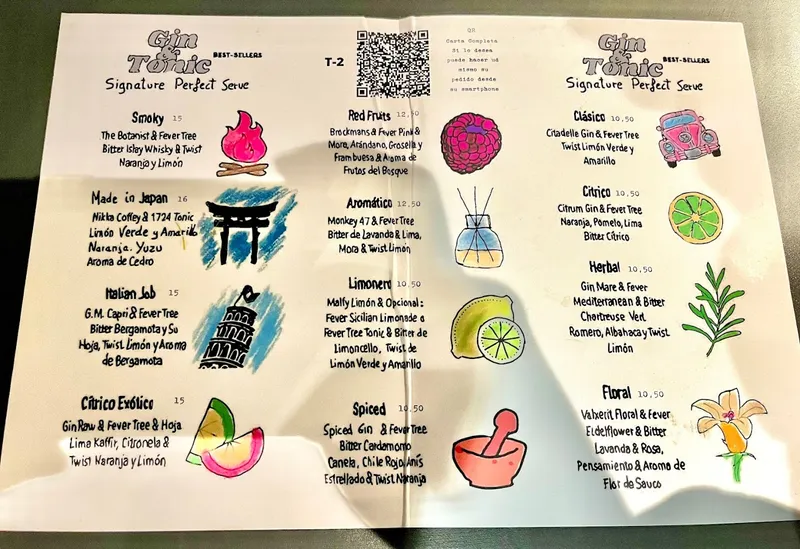 Gin & Tonic BEST-SELLERS
Signature Perfect Serve
Smoky 15
The Botanist & Fever Tree
Bitter Islay Whisky & Twist
Naranja y Limón
Made in Japan 16
Nikka Coffey & 1724 Tonic
Limón Verde y Amarillo
Naranja. Yuzu
Aroma de Cedro
Italian Job 15
G.M. Capri & Fever Tree
Bitter Bergamota y Su
Hoja, Twist Limón y Aroma
de Bergamota
Cítrico Exótico 15
Gin Raw & Fever Tree & Hoja
Lima Kaffir, Citronela &
Twist Naranja y Limón
T-2
QR
Carta Completa
Si lo desea
puede hacer ud
mismo su
pedido desde
su smartphone
Red Fruits 12,50
Brockmans & Fever Pink &
Mora, Arándano, Grosella y
Frambuesa & Aroma de
Frutos del Bosque
Aromático 12,50
Monkey 47 & Fever Tree
Bitter de Lavanda & Lima,
Mora & Twist Limón
Limonero 10,50
Malfy Limón & Opcional:
Fever Sicilian Limonade o
Fever Tree Tonic & Bitter de
Limoncello, Twist de
Limón Verde y Amarillo
Spiced 10,50
Spiced Gin & Fever Tree
Bitter Cardamomo
Canela, Chile Rojo, Anís
Estrellado & Twist Naranja
Gin & Tonic BEST-SELLERS
Signature Perfect Serve
Clásico 10,50
Citadelle Gin & Fever Tree
Twist Limón Verde y
Amarillo
Cítrico 10,50
Citrum Gin & Fever Tree
Naranja, Pomelo, Lima
Bitter Cítrico
Herbal 10,50
Gin Mare & Fever
Mediterranean & Bitter
Chartreuse Vert
Romero, Albahaca y Twist
Limón
Floral 10,50
Valxerit Floral & Fever
Elderflower & Bitter
Lavanda & Rosa,
Pensamiento & Aroma de
Flor de Sauco